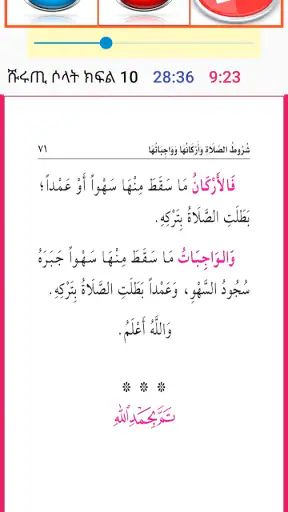 ሹሩጢ ሶላት ክፍል 10 28:36 9:23
شُرُوطُ الصَّلَاةِ وَأَرْكَانُهَا وَوَاجِبَاتُهَا ٧١
فَالأَرْكَانُ مَا سَقَطَ مِنْهَا سَهْواً أَوْ عَمْداً؛
بَطَلَتِ الصَّلَاةُ بِتَرْكِهِ.
وَالوَاجِبَاتُ مَا سَقَطَ مِنْهَا سَهْواً جَبَرَهُ
سُجُودُ السَّهْوِ، وَعَمْداً بَطَلَتِ الصَّلَاةُ بِتَرْكِهِ.
وَاللَّهُ أَعْلَمُ.
* * *
تَمَّ بِحَمْدِ اللهِ